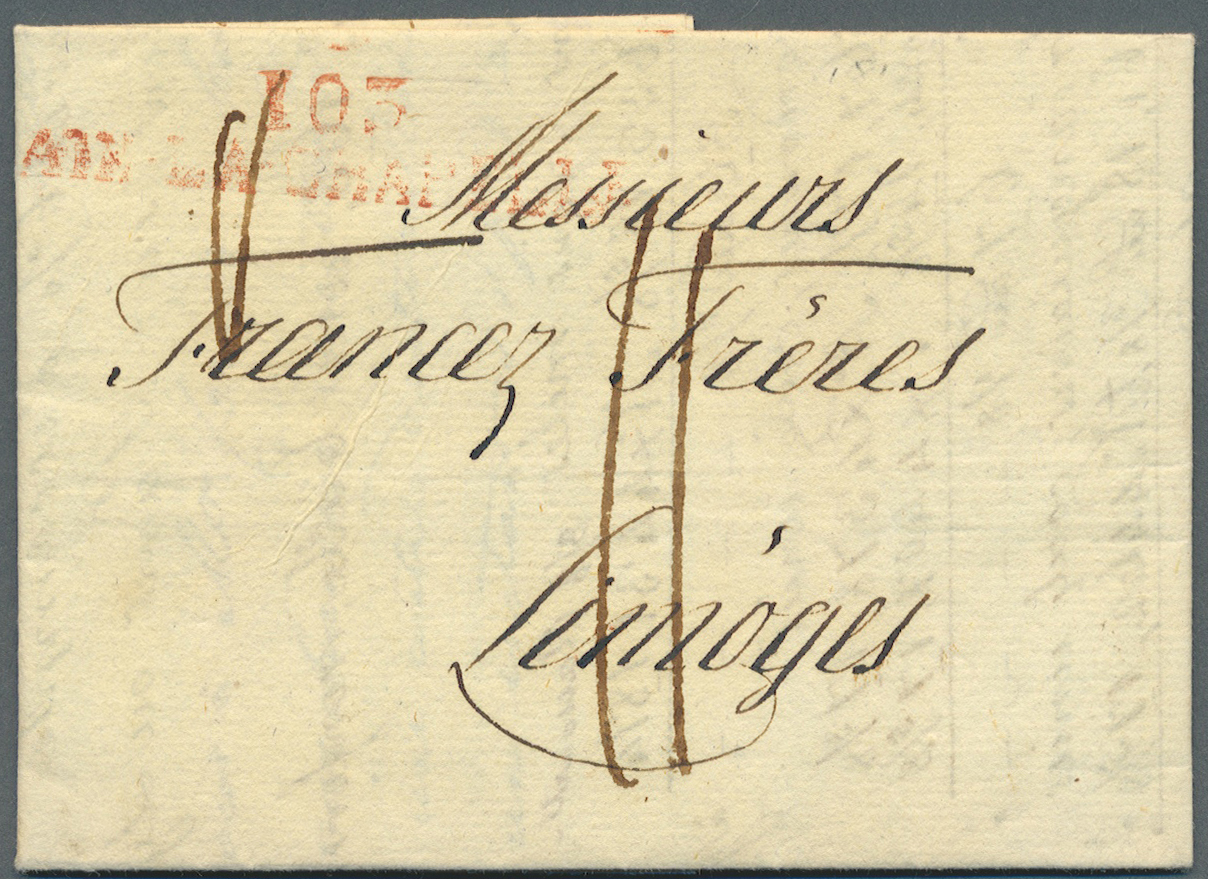 103
AIX-LA-CHAPELLE
Messieurs
Francez Frères
Limóges